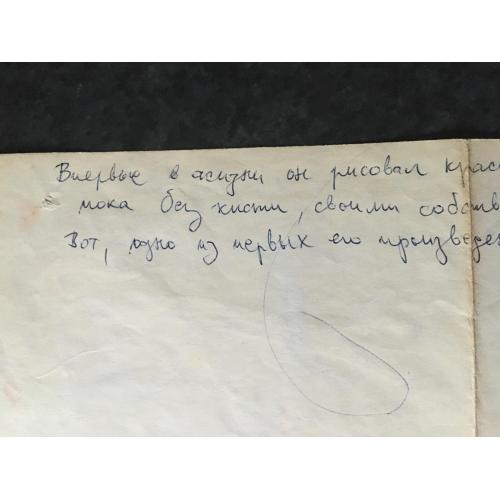 Впервые в жизни он рисовал крас
пока без кисти, своими собств
Вот, одно из первых его произведен